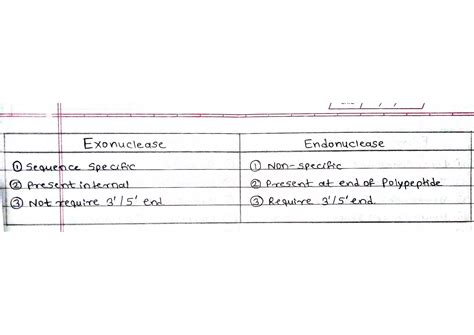 Exonuclease Endonuclease
① Sequence Specific ① Non-specific
② Present internal ② Present at end of Polypeptide
③ Not require 3'/5' end ③ Require 3'/5' end.